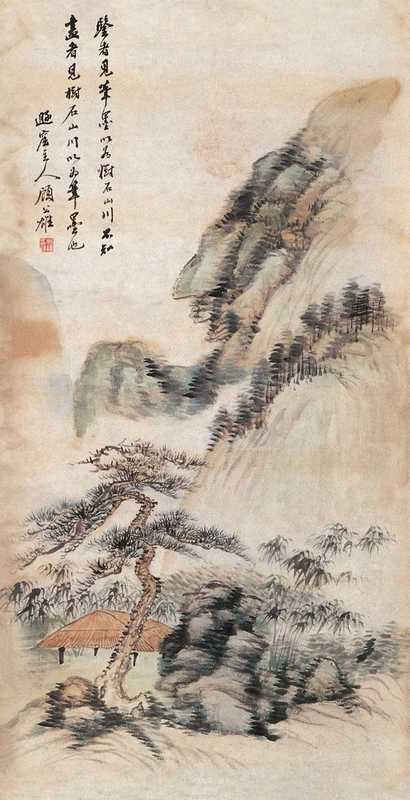 鑒者見筆墨以為樹石山川不知
畫者見樹石山川以為筆墨也
主人顧公雄